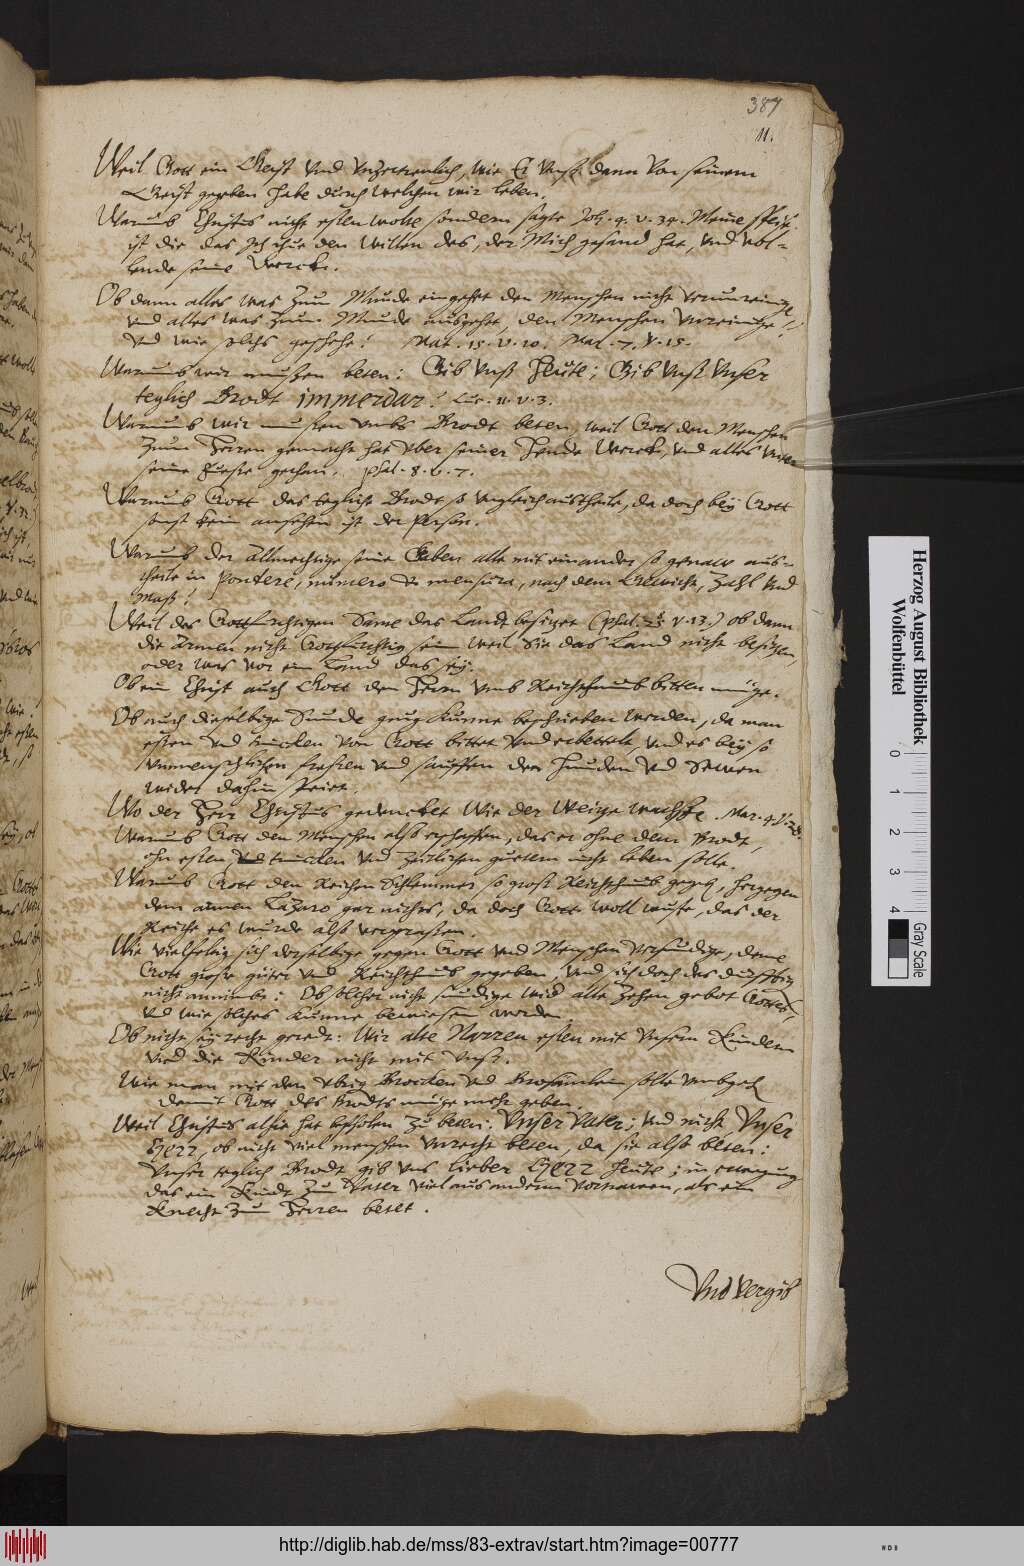 387
11.
Weil Gott ein Geist vnd vnzertrenlich, wie Er vnß dann von seinem
Geist gegeben habe durch welchen wir leben.
Warumb Christus nicht essen wolte sondern sagte Joh. 4. v. 34. Meine speis
ist die das Ich thue den willen des, der Mich gesand hat, vnd vol-
lende seine Werck.
Ob dann alles was zum Munde eingehet den Menschen nicht verunreinige
vnd alles was zum Munde ausgehet, den Menschen vnreinige!
vnd wie solchs geschehe! Mat. 15. v. 20. Mar. 7. v. 15.
Warumb wir mußen beten: Gib vnß Heute; Gib vnß vnser
teglich Brodt immerdar! Luc. 11. v. 3.
Warumb wir mußen vmbs Brodt beten, weil Gott den Menschen
zum Herren gemacht hat vber seiner Hende Werck, vnd alles vnter
seine Fueße gethan. psal. 8. v. 7.
Warumb Gott das teglich Brodt so vngleich austheile, da doch bey Gott
sonst kein ansehen ist der Person.
Warumb der Allmechtige seine Gaben alle mit einander so genaw aus-
theile in pondere, numero & mensura, nach dem Gewicht, Zahl vnd
Maß!
Weil des Gottfurchtigen Same das Landt besitzet (psal. 25 v. 13.) ob dann
die Armen nicht Gottfurchtig sein weil Sie das Land nicht besitzen,
oder was vor ein Land das sey.
Ob ein Christ auch Gott den Herrn vmb Reichthumb bitten müge.
Ob auch dieselbige Sunde gnug kunne beschrieben werden, da man
essen vnd trincken von Gott bittet vnd erbettelt, vnd es bey so
vnmenschlichem fressen vnd sauffen den Hunden vnd Sewen
wider dahin speiet.
Wo der Herr Christus gedencket wie der Weitze wachsse. Mar. 4. v. 28.
Warumb Gott den Menschen also erschaffen, das er ohne dem Brodt,
ohn essen vnd trincken vnd zeitlichen gütern nicht leben solle.
Warumb Gott den Reichen Schlemmer so groß Reichthumb gegeben, hergegen
dem armen Lazaro gar nichts, da doch Gott woll wuste, das der
Reiche es wurde also verprassen.
Wie vielfeltig sich derselbige gegen Gott vnd Menschen versundige, deme
Gott große güter vnd Reichthumb gegeben, vnd sich doch des durfftigen
nicht annimbt: Ob solcher nicht sundige wid' alle Zehen gebot Gottes,
vnd wie solches kunne bewiesen werden.
Ob nicht sey recht geredt: Wir alte Narren essen mit vnsern Kindern
vnd die Kinder nicht mit vnß.
Wie man mit den vbrig Brocken vnd Brosamlein solle vmbgeh
damit Gott des Brodts müge mehr geben.
Weil Christus also hat befholen zu beten: Vnser Vater; vnd nicht Vnser
Herr, ob nicht viel menschen vnrecht beten, da sie also beten:
Vnser teglich Brodt gib vns lieber Herr Heute; in erwegung
das ein Kindt zum Vater viel aus anderm vertrawen, als ein
Knecht zum Herren betet.
Vnd vergib
Herzog August Bibliothek
Wolfenbüttel
0 1 2 3 4
Gray Scale
http://diglib.hab.de/mss/83-extrav/start.htm?image=00777